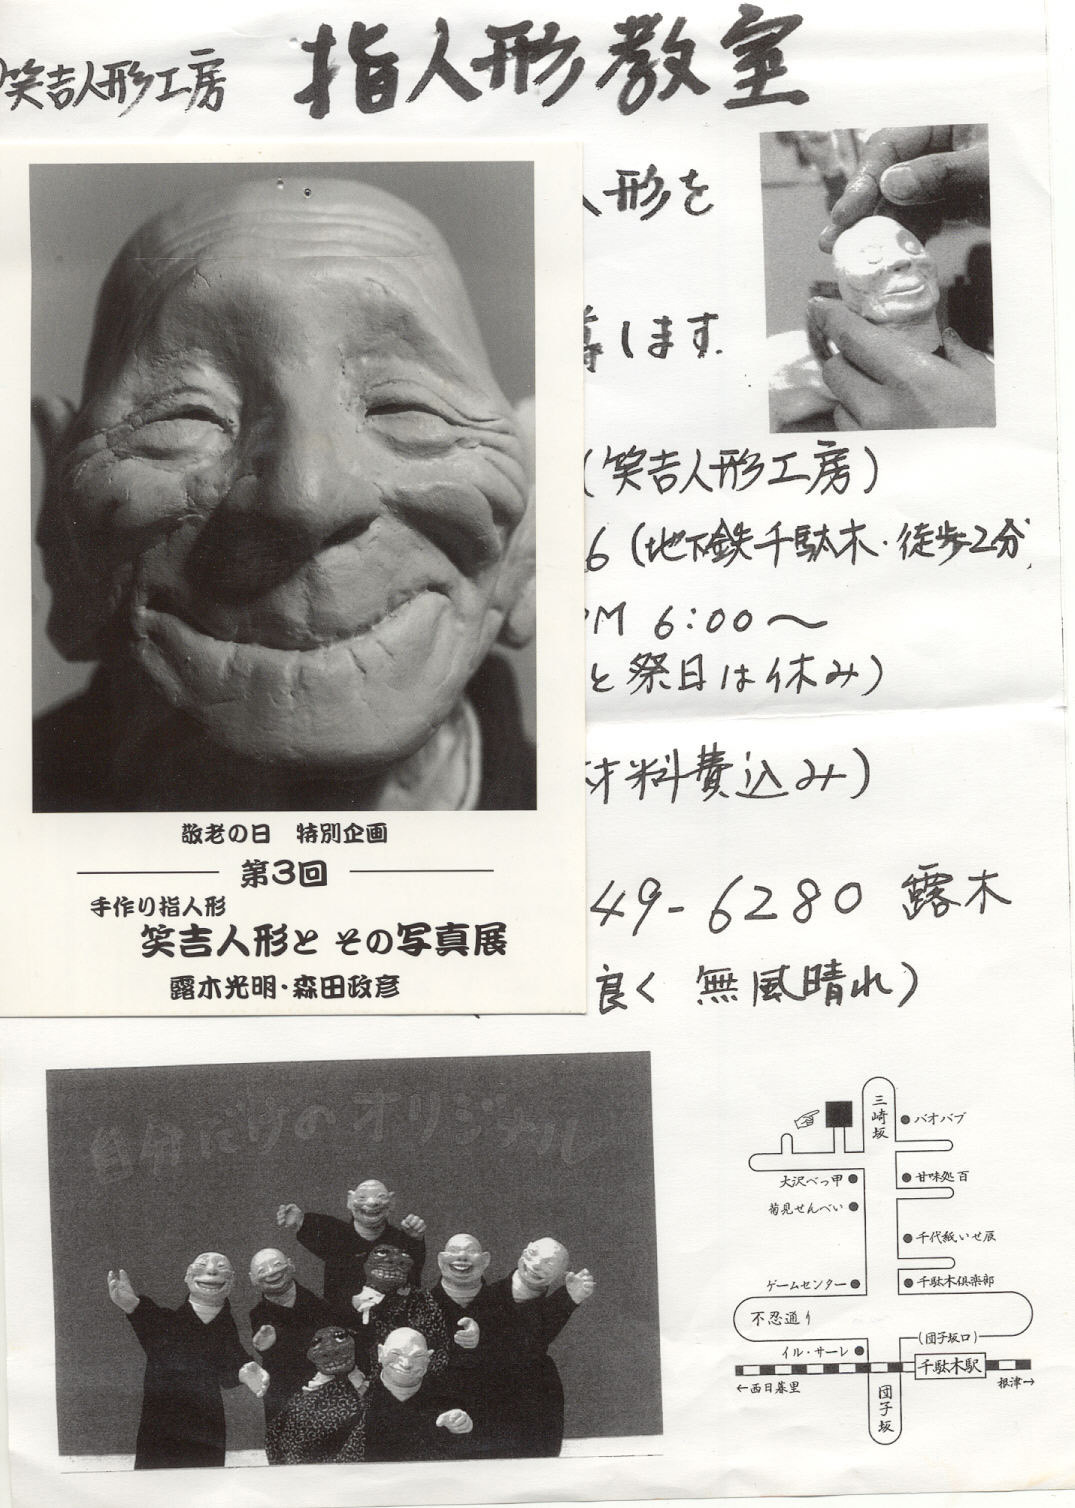 笑吉人形工房 指人形教室
人形を
導します.
(笑吉人形工房)
6 (地下鉄千駄木・徒歩2分)
PM 6:00〜
と祭日は休み)
材料費込み)
49-6280 露木
良く 無風晴れ)
敬老の日 特別企画
第3回
手作り指人形
笑吉人形と その写真展
露木光明・森田政彦
自分だけのオリジナル
三崎坂
バオバブ
大沢べっ甲
甘味処百
菊見せんべい
千代紙いせ辰
ゲームセンター
千駄木倶楽部
不忍通り
(団子坂口)
イル・サーレ
千駄木駅
←西日暮里
根津→
団子坂